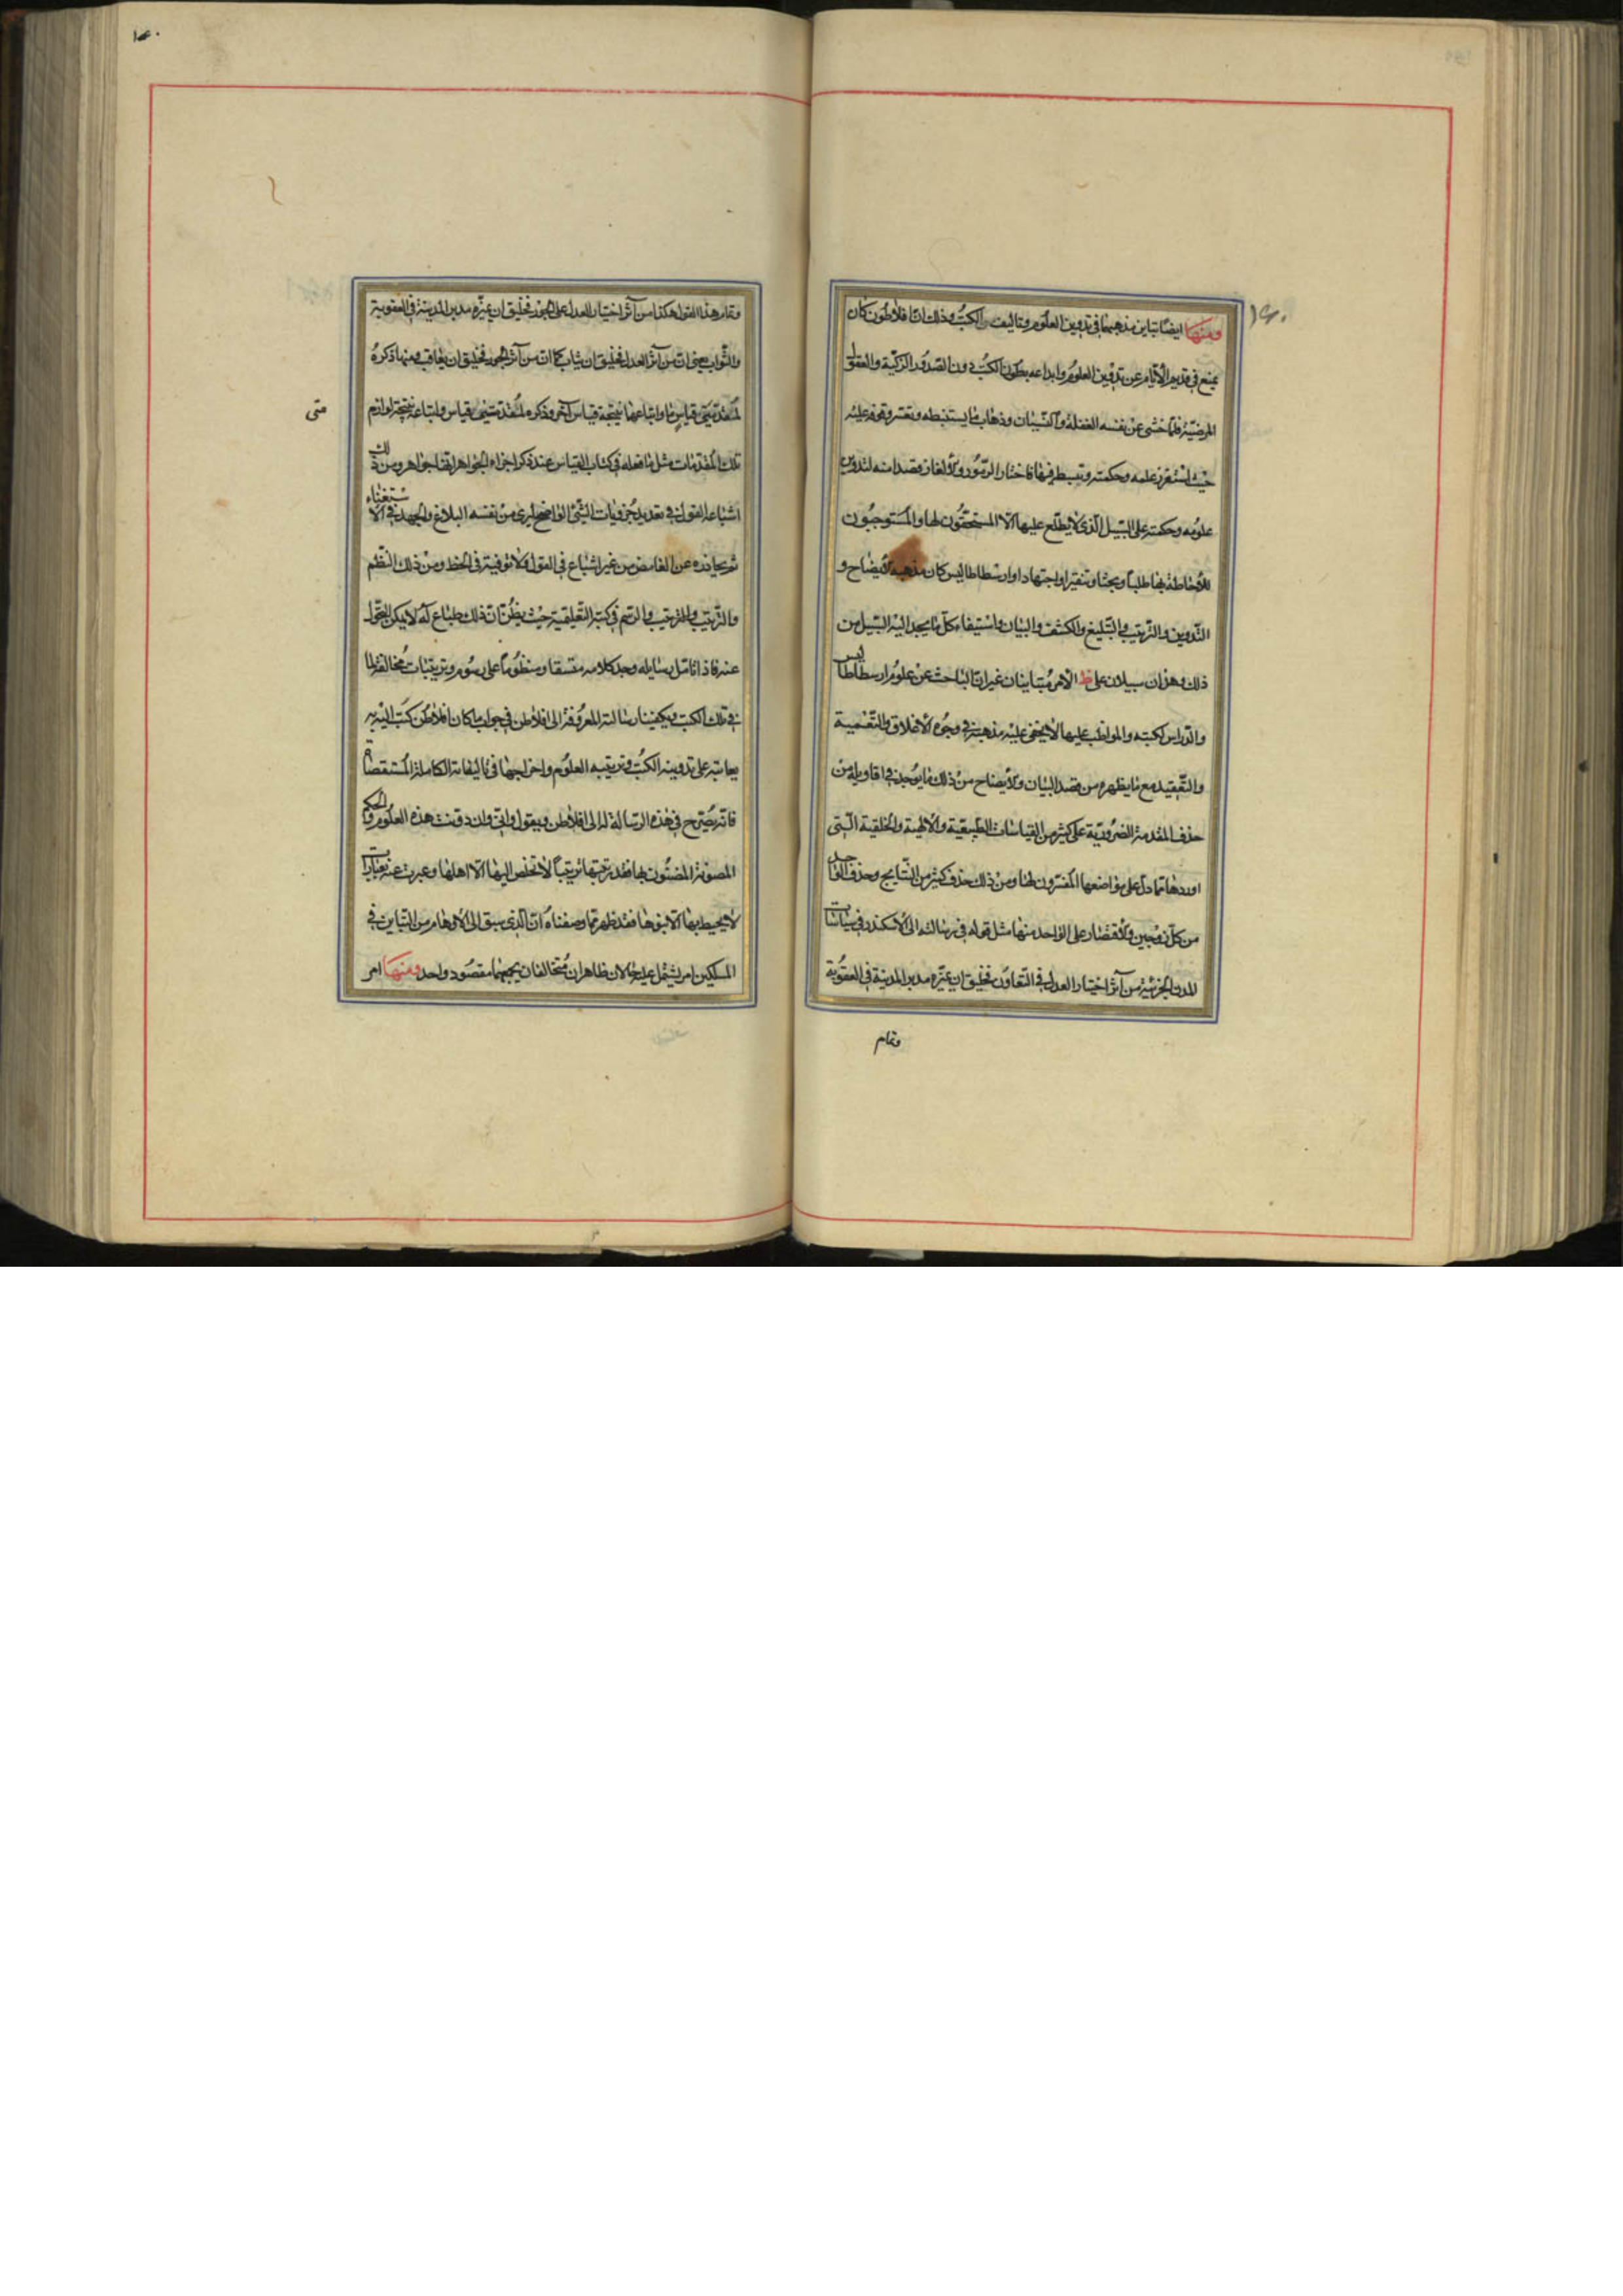 ومنها ايضا تباين مذهبهما في تدوين العلوم وتاليف الكتب وذلك ان افلاطون كان
يمنع في قديم الأيام عن تدوين العلوم وايداعه بطون الكتب دون الصدور الزكية والعقول
المرضية فلما خشى عن نفسه الغفلة والنسيان وذهاب ما يستنبطه وتعسر وقوفه عليه
حيث استغزر علمه وحكمته وتبسط فيها فاختار الرموز والألغاز قصدا منه لتدوين
علومه وحكمته على السبيل الذى لا يطلع عليها الا المستحقون لها والمستوجبون
للاحاطة بها طلبا وبحثا وتنقيرا واجتهادا وارسطاطاليس كان مذهبه الايضاح و
التدوين والترتيب والتبليغ والكشف والبيان واستيفاء كل ما يجد اليه السبيل من
ذلك وهذان سبيلان على ظ الأمر متباينان غير ان الباحث عن علوم ارسطاطاليس
والدارس لكتبه والمواظب عليها لا يخفى عليه مذهبه في وجوه الاغلاق والتعمية
والتعقيد مع ما يظهره من قصد البيان والايضاح من ذلك ما يوجد في اقاويله من
حذف المقدمة الضرورية على كثير من القياسات الطبيعية والالهية والخلقية التي
اوردها مما دل على مواضعها المفسرون لها ومن ذلك حذف كثير من النتايج وحذف الواحد
من كل زوجين والاقتصار على الواحد منها مثل قوله في رسالته الى الاسكندر في سياسات
المدن الجزئية من آثر اختيار العدل في التعاون فخليق ان يميزه مدبر المدينة في العقوبة
وتمام
١٤٠
وتمام هذا القول هكذا من آثر اختيار العدل على الجور فخليق ان يميزه مدبر المدينة في العقوبة
والثواب يعنى ان من آثر العدل فخليق ان يثاب كما ان من آثر الجور فخليق ان يعاقب ومنها ذكره
لمقدمتى قياس ما واتباعها نتيجة قياس آخر وذكره لمقدمتى قياس واتباعه نتيجة لوازم
تلك المقدمات مثل ما فعله في كتاب القياس عند ذكر اجزاء الجواهر انها جواهر ومن ذلك
اشباعه القول في تعديد جزويات الشئ الواضح ليرى من نفسه البلاغ والجهد في الاستغناء
ثم مجاوزته عن الغامض من غير اشباع في القول ولا توفيته في الحظ ومن ذلك النظم
والترتيب والرسم في كتبه التعليقية حيث يظن ان ذلك طباع له لا يمكن التحول
عنه فاذا تامل رسايله وجد كلامه متسقا ومنظوما على رسوم وترتيبات مخالفة لما
في تلك الكتب ويكفينا رسالته المعروفة الى افلاطن في جواب ما كان افلاطن كتب اليه به
يعاتبه على تدوينه الكتب وترتيبه العلوم واخراجها في تاليفاته الكاملة المستقصاة
فانه يصرح في هذه الرسالة له الى افلاطن ويقول وانى وان دونت هذه العلوم والحكم
المصونة المضنون بها فقد رتبتها ترتيبا لا تخلص اليها الا اهلها وعبرت عنها بعبارات
لا يحيط بها الا بنوها فقد ظهر مما وصفناه ان الذى سبق الى الاوهام من التباين في
المسلكين امر يشتمل عليه حالان ظاهران متخالفان يجمعهما مقصود واحد ومنها امر
متى